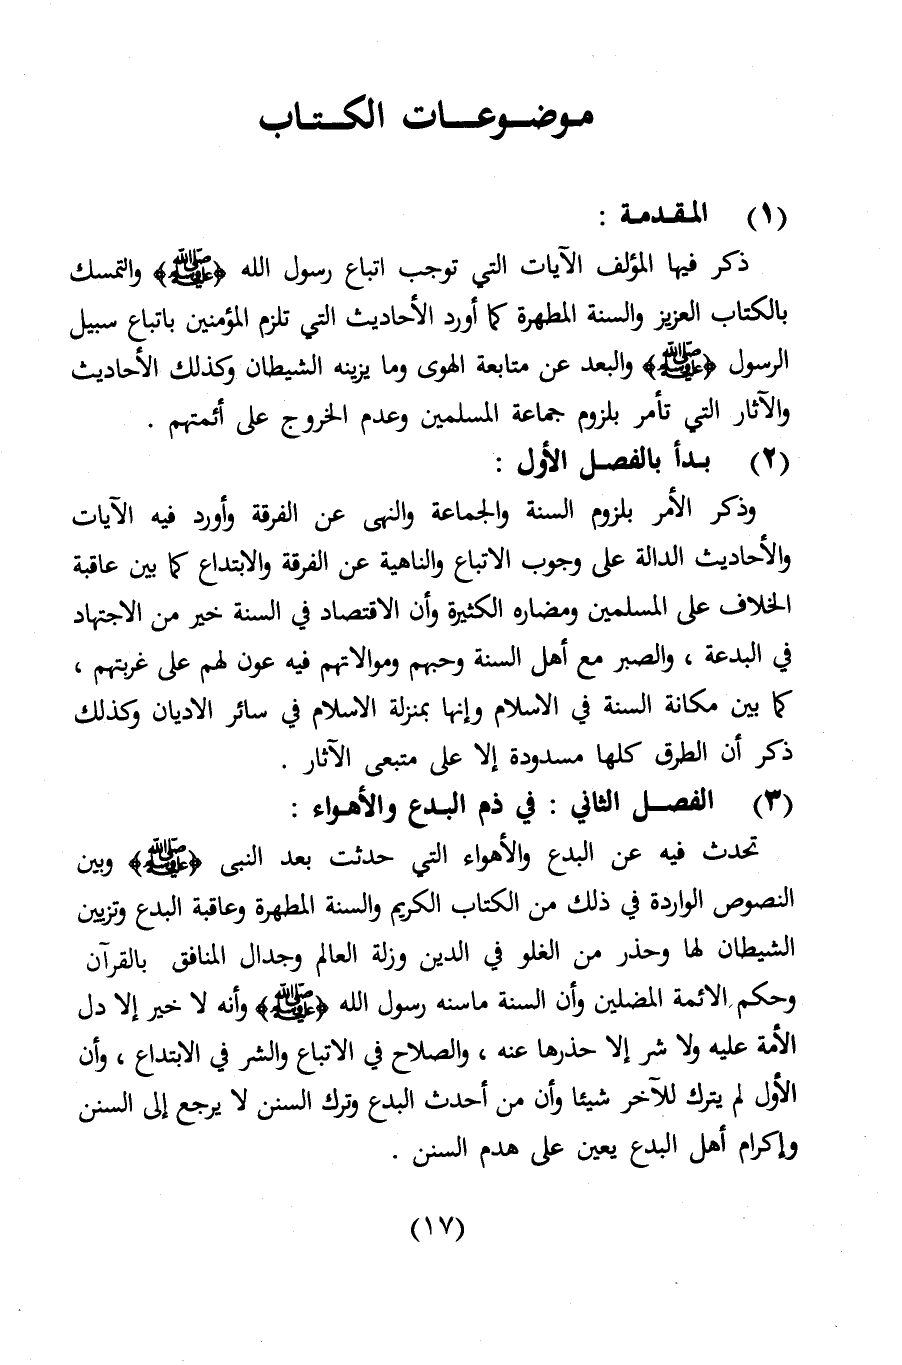 موضوعات الكتاب
(١) المقدمة :
ذكر فيها المؤلف الآيات التي توجب اتباع رسول الله ﴿ﷺ﴾ والتمسك
بالكتاب العزيز والسنة المطهرة كما أورد الأحاديث التي تلزم المؤمنين باتباع سبيل
الرسول ﴿ﷺ﴾ والبعد عن متابعة الهوى وما يزينه الشيطان وكذلك الأحاديث
والآثار التي تأمر بلزوم جماعة المسلمين وعدم الخروج على أئمتهم .
(٢) بدأ بالفصل الأول :
وذكر الأمر بلزوم السنة والجماعة والنهى عن الفرقة وأورد فيه الآيات
والأحاديث الدالة على وجوب الاتباع والناهية عن الفرقة والابتداع كما بين عاقبة
الخلاف على المسلمين ومضاره الكثيرة وأن الاقتصاد في السنة خير من الاجتهاد
في البدعة ، والصبر مع أهل السنة وحبهم وموالاتهم فيه عون لهم على غربتهم ،
كما بين مكانة السنة في الاسلام وإنها بمنزلة الاسلام في سائر الاديان وكذلك
ذكر أن الطرق كلها مسدودة إلا على متبعى الآثار .
(٣) الفصل الثاني : في ذم البدع والأهواء :
تحدث فيه عن البدع والأهواء التي حدثت بعد النبى ﴿ﷺ﴾ وبين
النصوص الواردة في ذلك من الكتاب الكريم والسنة المطهرة وعاقبة البدع وتزيين
الشيطان لها وحذر من الغلو في الدين وزلة العالم وجدال المنافق بالقرآن
وحكم الائمة المضلين وأن السنة ماسنه رسول الله ﴿ﷺ﴾ وأنه لا خير إلا دل
الأمة عليه ولا شر إلا حذرها عنه ، والصلاح في الاتباع والشر في الابتداع ، وأن
الأول لم يترك للآخر شيئا وأن من أحدث البدع وترك السنن لا يرجع إلى السنن
وإكرام أهل البدع يعين على هدم السنن .
(١٧)